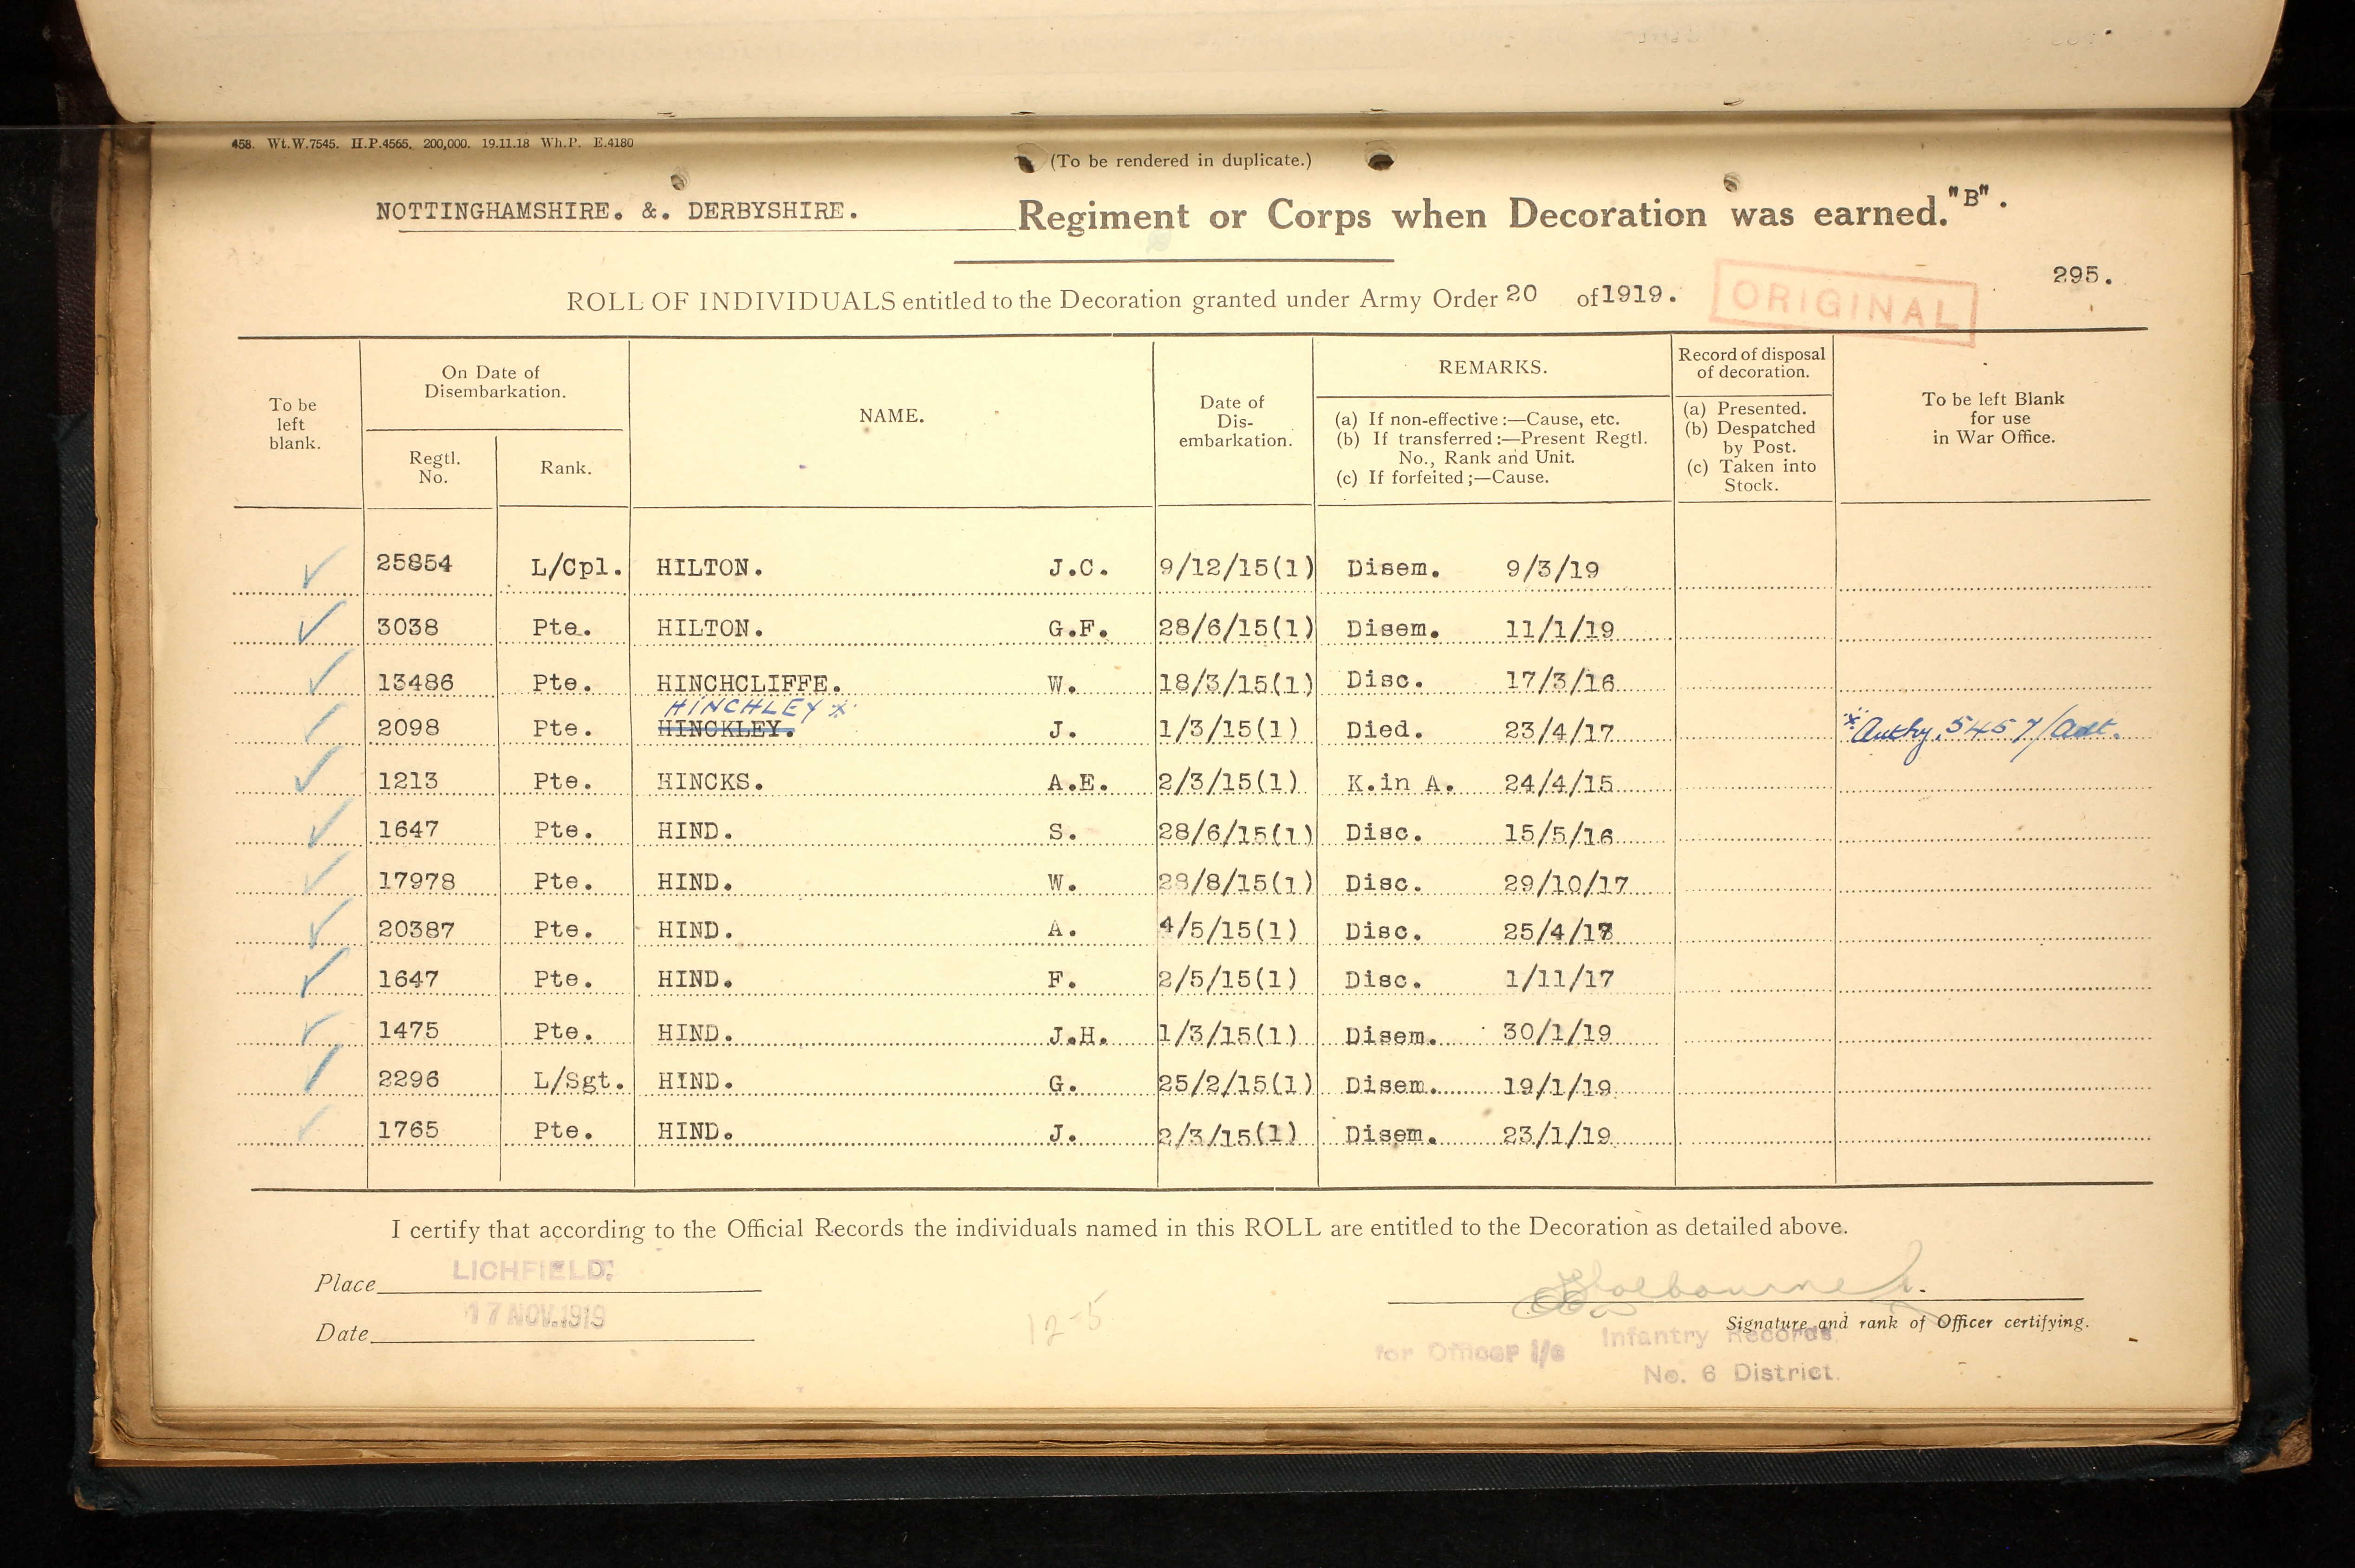 458. Wt.W.7545. H.P.4565. 200,000. 19.11.18 Wh.P. E.4180
(To be rendered in duplicate.)
NOTTINGHAMSHIRE. &. DERBYSHIRE. Regiment or Corps when Decoration was earned. "B".
295.
ROLL OF INDIVIDUALS entitled to the Decoration granted under Army Order 20 of 1919.
ORIGINAL
To be left blank.
On Date of Disembarkation.
Regtl. No.
Rank.
NAME.
Date of Dis-embarkation.
REMARKS.
(a) If non-effective:—Cause, etc.
(b) If transferred:—Present Regtl. No., Rank and Unit.
(c) If forfeited;—Cause.
Record of disposal of decoration.
(a) Presented.
(b) Despatched by Post.
(c) Taken into Stock.
To be left Blank for use in War Office.
25854 L/Cpl. HILTON. J.C. 9/12/15(1) Disem. 9/3/19
3038 Pte. HILTON. G.F. 28/6/15(1) Disem. 11/1/19
13486 Pte. HINCHCLIFFE. W. 18/3/15(1) Disc. 17/3/16
HINCHLEY *
2098 Pte. HINCKLEY. J. 1/3/15(1) Died. 23/4/17 * Authy. 5457/Adt.
1213 Pte. HINCKS. A.E. 2/3/15(1) K.in A. 24/4/15
1647 Pte. HIND. S. 28/6/15(1) Disc. 15/5/16
17978 Pte. HIND. W. /8/15(1) Disc. 29/10/17
20387 Pte. HIND. A. 4/5/15(1) Disc. 25/4/18
1647 Pte. HIND. F. 2/5/15(1) Disc. 1/11/17
1475 Pte. HIND. J.H. 1/3/15(1) Disem. 30/1/19
2296 L/Sgt. HIND. G. 25/2/15(1) Disem. 19/1/19
1765 Pte. HIND. J. 2/3/15(1) Disem. 23/1/19
I certify that according to the Official Records the individuals named in this ROLL are entitled to the Decoration as detailed above.
Place LICHFIELD.
Date 17 NOV.1919
12-5
Signature and rank of Officer certifying.
for Officer i/c Infantry Records.
No. 6 District.